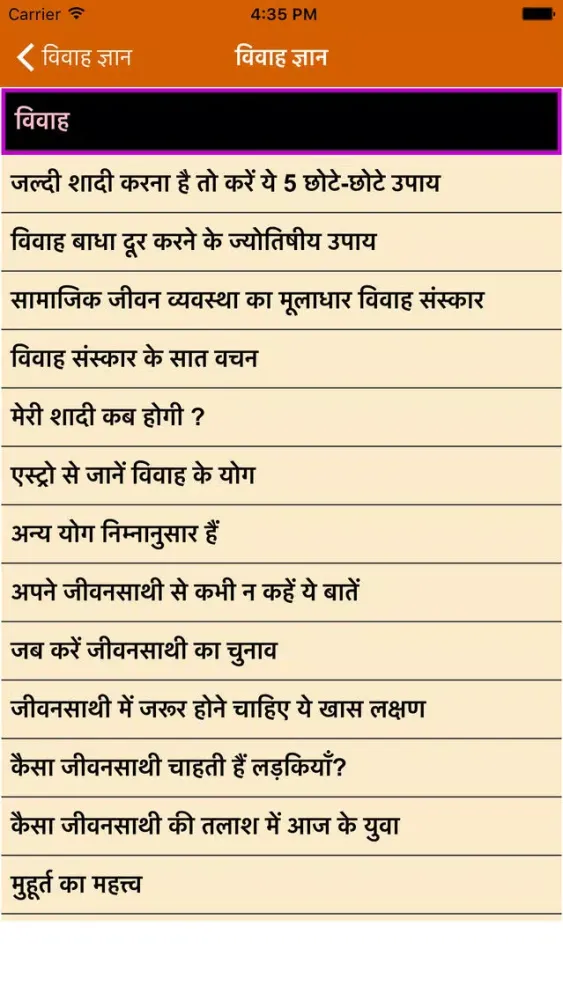 Carrier 4:35 PM
विवाह ज्ञान विवाह ज्ञान
विवाह
जल्दी शादी करना है तो करें ये 5 छोटे-छोटे उपाय
विवाह बाधा दूर करने के ज्योतिषीय उपाय
सामाजिक जीवन व्यवस्था का मूलाधार विवाह संस्कार
विवाह संस्कार के सात वचन
मेरी शादी कब होगी ?
एस्ट्रो से जानें विवाह के योग
अन्य योग निम्नानुसार हैं
अपने जीवनसाथी से कभी न कहें ये बातें
जब करें जीवनसाथी का चुनाव
जीवनसाथी में जरूर होने चाहिए ये खास लक्षण
कैसा जीवनसाथी चाहती हैं लड़कियाँ?
कैसा जीवनसाथी की तलाश में आज के युवा
मुहूर्त का महत्त्व